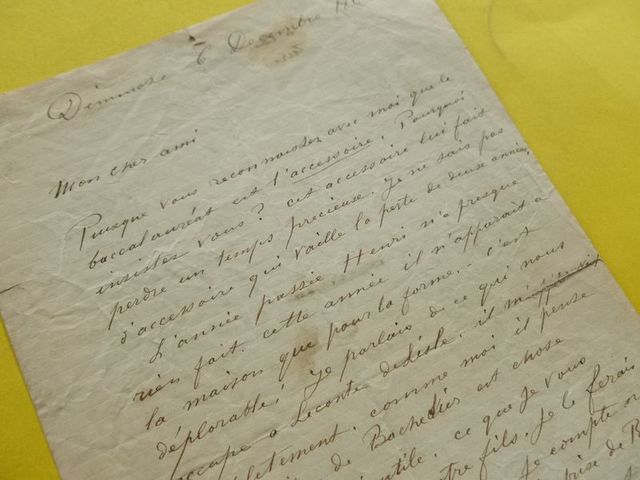 Dimanche 6 Décembre
Mon cher ami
Puisque vous reconnaissez avec moi que le
baccalauréat est l'accessoire, Pourquoi
insistez vous? cet accessoire lui fait
perdre un temps précieuse. Je ne sais pas
d'accessoire qui vaille la perte de deux années,
L'année passée Henri n'a presque
rien fait. cette année il n'apparait à
la maison que pour la forme. c'est
déplorable! Je parlais de ce qui nous
occupe à Leconte de Lisle, il
comme moi il pense
de Bachelier est chose
ce que je vous
fils. Je le ferais
Je compte
de